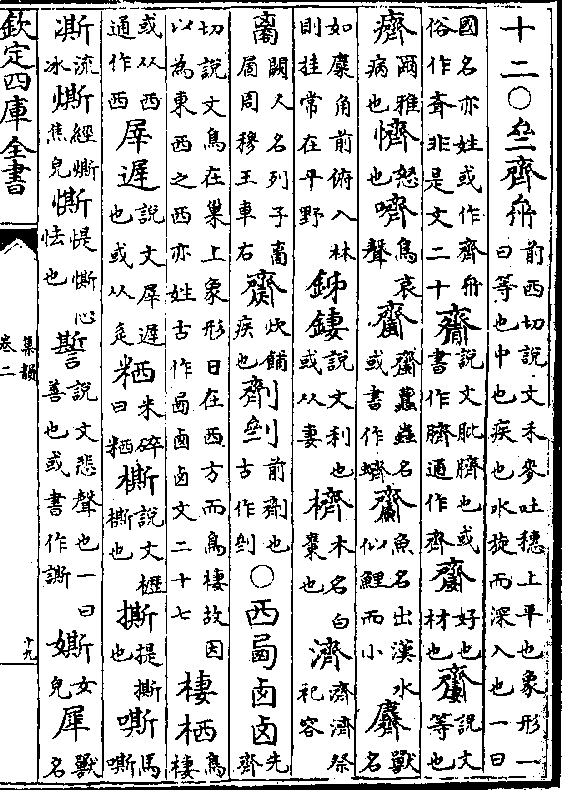 十二○亝齊𠫼前西切說文禾麥吐穗上平也象形一曰等也中也疾也水旋而深入也一曰
國名亦姓或作齊𠫼俗作斉非是文二十𪗇說文肶臍也或書作臍通作齊齌好也說文材也齎等也
癠爾雅病也懠怒也嚌鳥哀聲齏蠹蟲名或書作蠐齌魚名出漢水似鯉而小麡獸名
如麋角前俯入林則挂常在平野銻鏤說文利也或从妻櫅木名白棗也濟濟濟祭祀容
闕人名列子周穆王車右齌炊餔疾也劑前劑也古作○西卤卥先齊
切說文鳥在巢上象形日在西方而鳥棲故因以為東西之西亦姓古作卤卥文二十七棲栖鳥棲
或从西通作西屖遟說文屖遟也或从辵粞米碎曰粞㯕說文㯕撕也撕提撕也嘶馬嘶
澌流冰燍經燍焦皃㒋惿㒋心怯也說文悲聲也一曰善也或書作女皃犀獸名
欽定四庫全書
集韻
卷二
十九